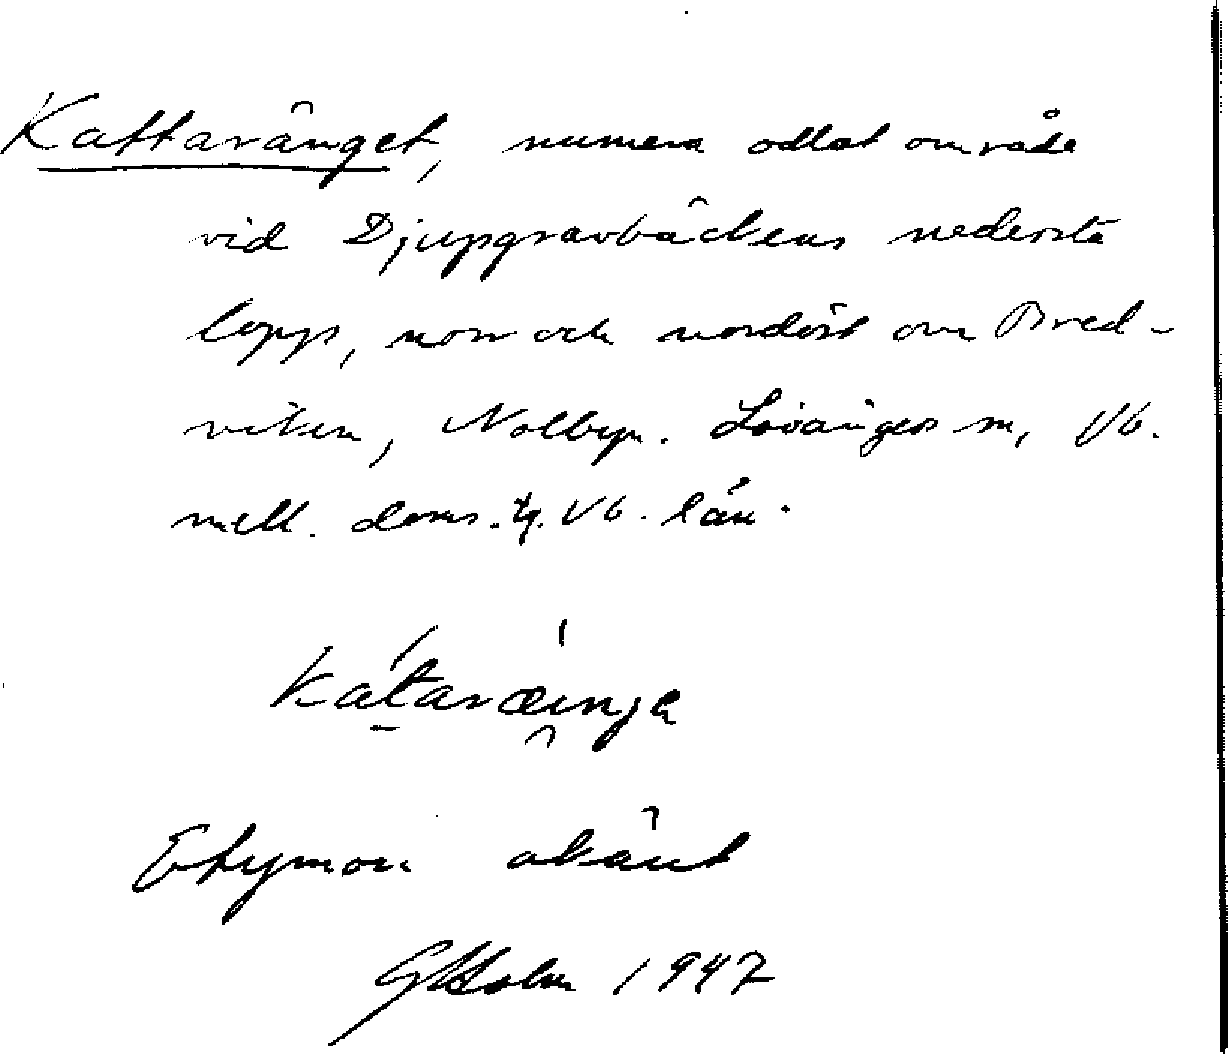 Kattaränget, numera odlat område
vid Djupgravbäckens nedersta
lopp, norr och nordöst om Bred-
viken, Nolbyn. Lövångers sn, Vb.
mell. doms. tg. Vb. län.
kátaræinje
Etymon okänt
GHolm 1947